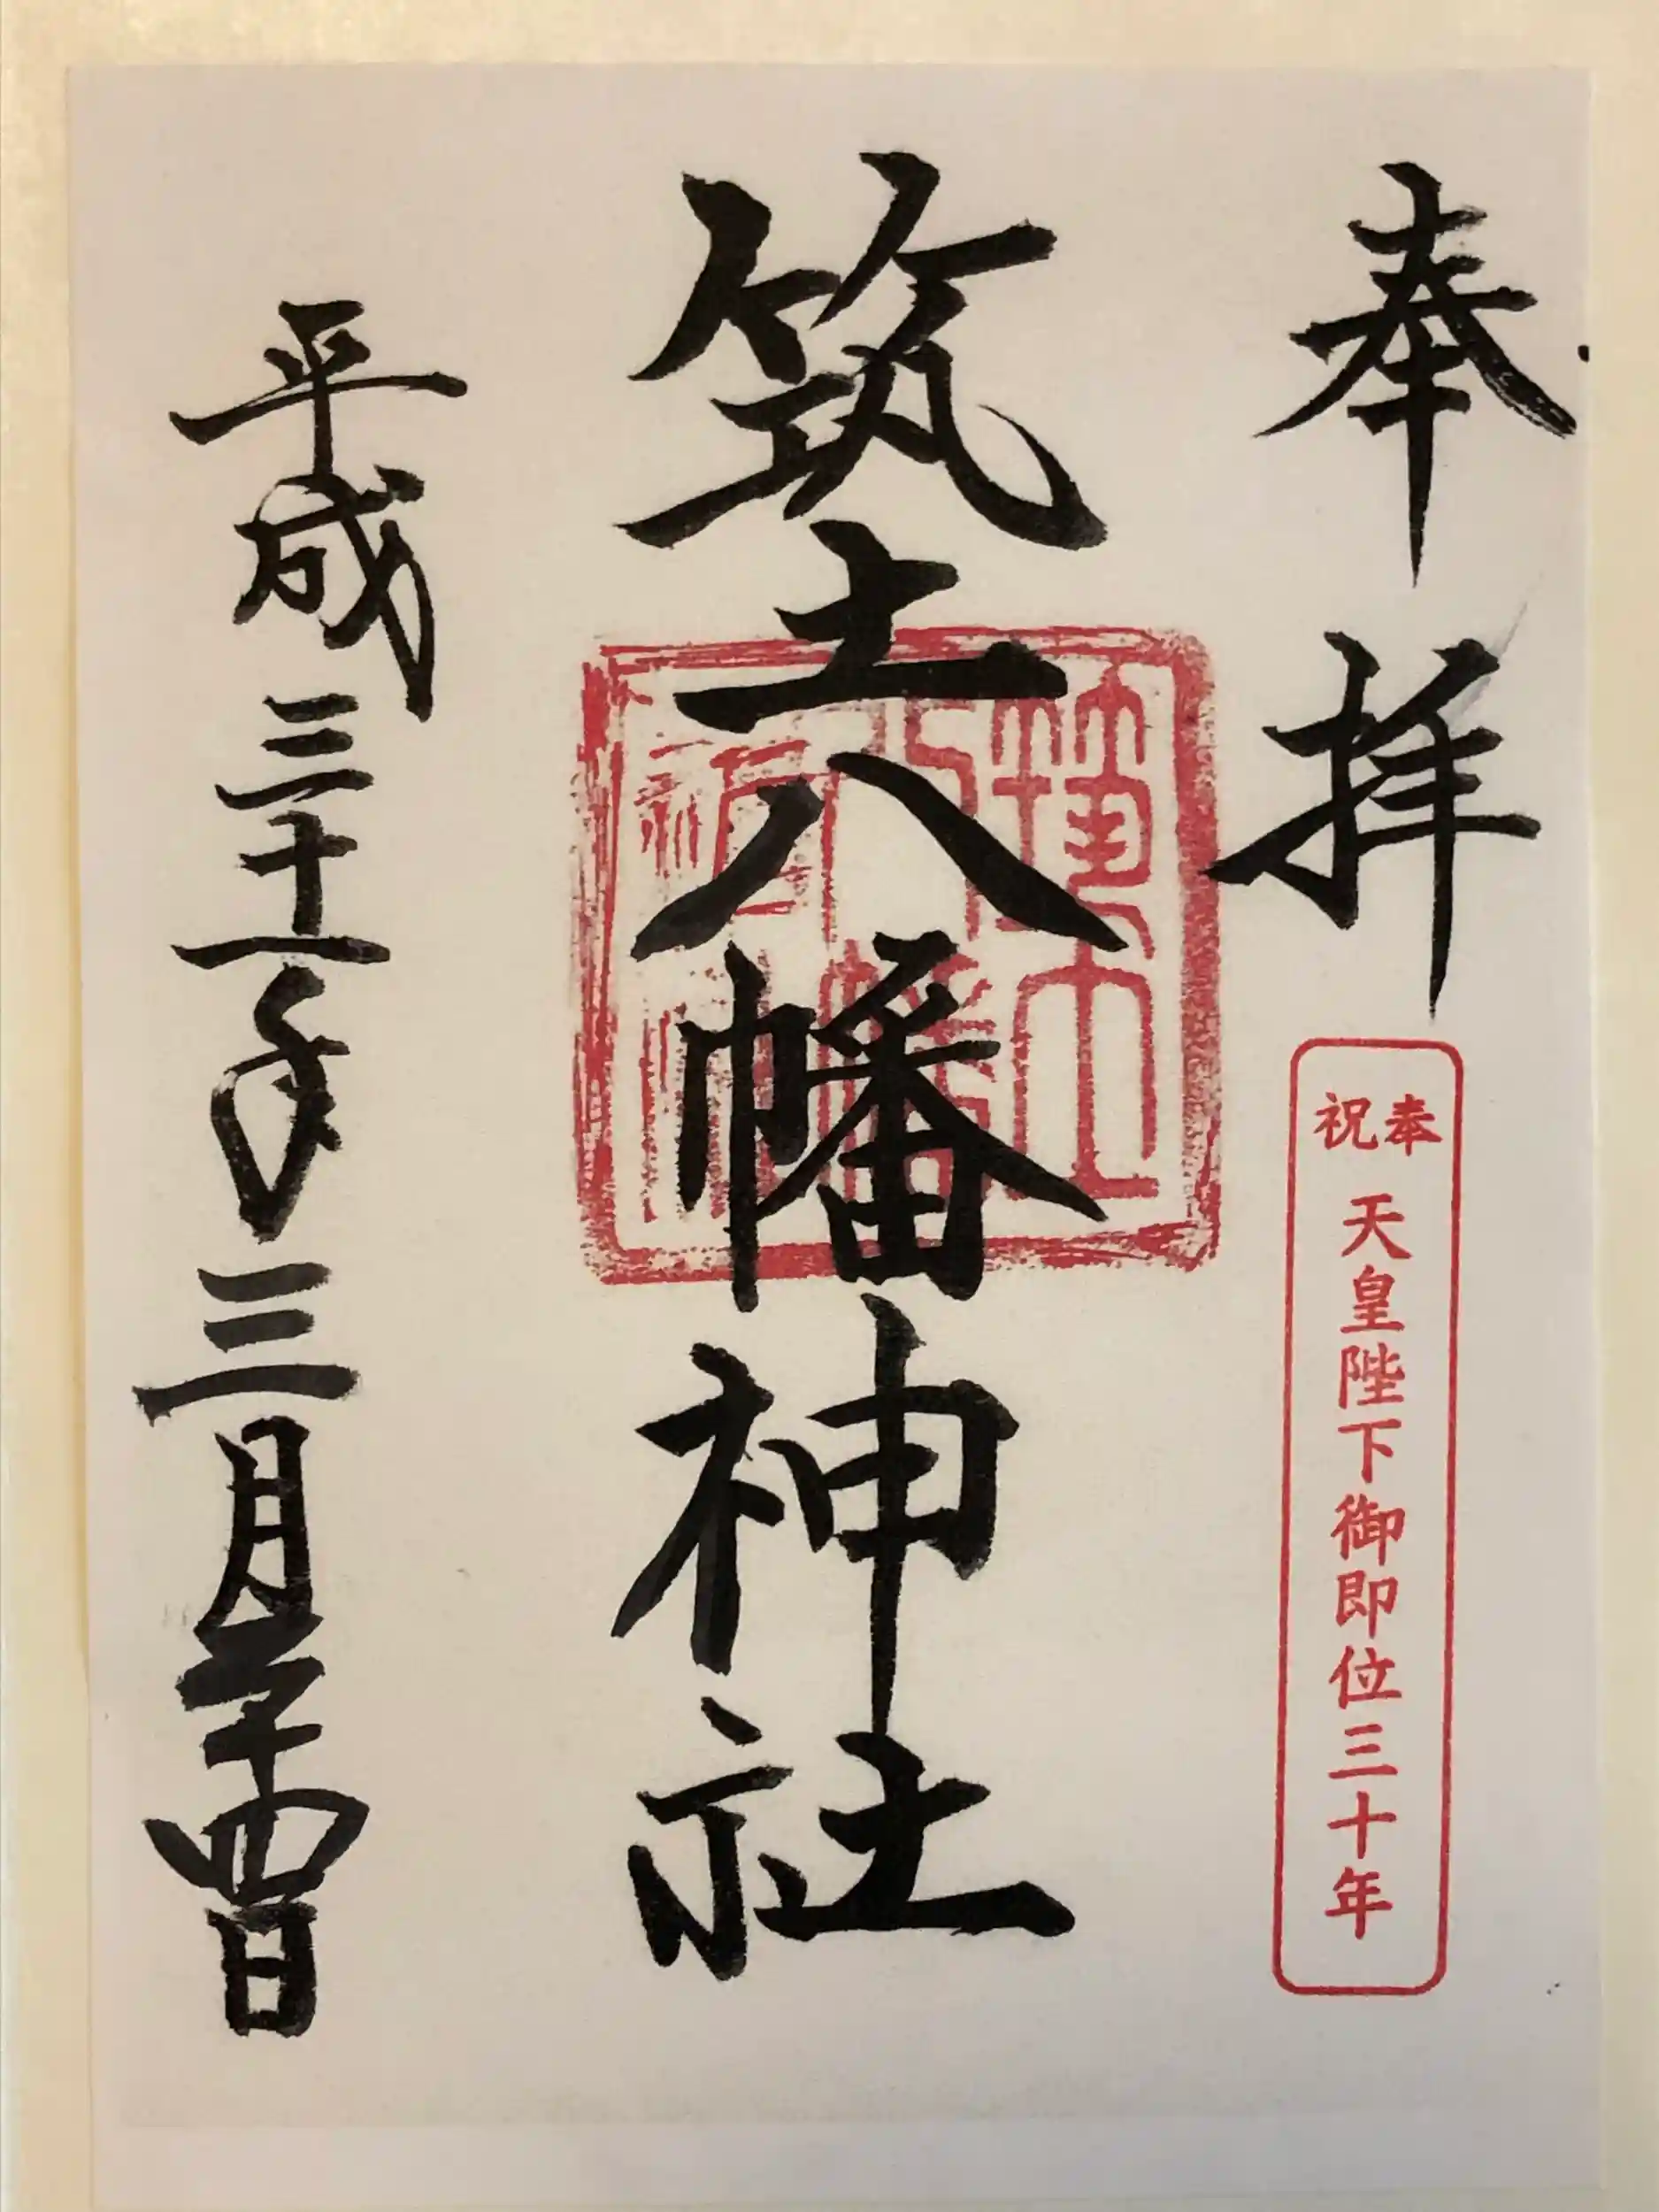 奉拝
奉祝
天皇陛下御即位三十年
筑土八幡神社
平成三十一年三月二十四日